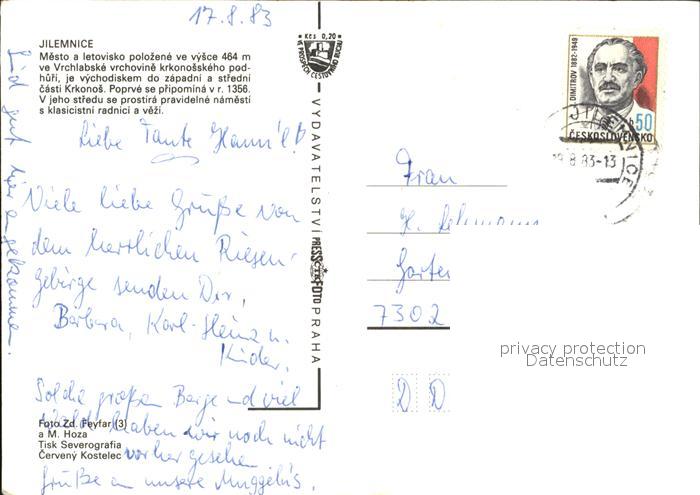 17.8.83
JILEMNICE
Město a letovisko položené ve výšce 464 m
ve Vrchlabské vrchovině krkonošského pod-
hůří, je východiskem do západní a střední
části Krkonoš. Poprvé se připomíná v r. 1356.
V jeho středu se prostírá pravidelné náměstí
s klasicistní radnicí a věží.
Liebe Tante
Viele liebe Grüße von
dem herrlichen Riesen-
gebirge senden Dir,
Barbara, Karl-Heinz u.
Kinder.
Solche großen Berge und viel
haben wir noch nicht
vorher gesehen
Grüße an unsere
Sind gut hier angekommen.
Foto Zd. Feyfar (3)
a M. Hoza
Tisk Severografia
Červený Kostelec
Kčs 0,20
VE PROSPĚCH CESTOVNÍHO RUCHU
VYDAVATELSTVÍ PRESSFOTO PRAHA
DIMITROV 1882-1949
50
ČESKOSLOVENSKO
JILEMNICE
8.83-13
Frau
H. Lehmann
Garten
7302
DD
privacy protection
Datenschutz